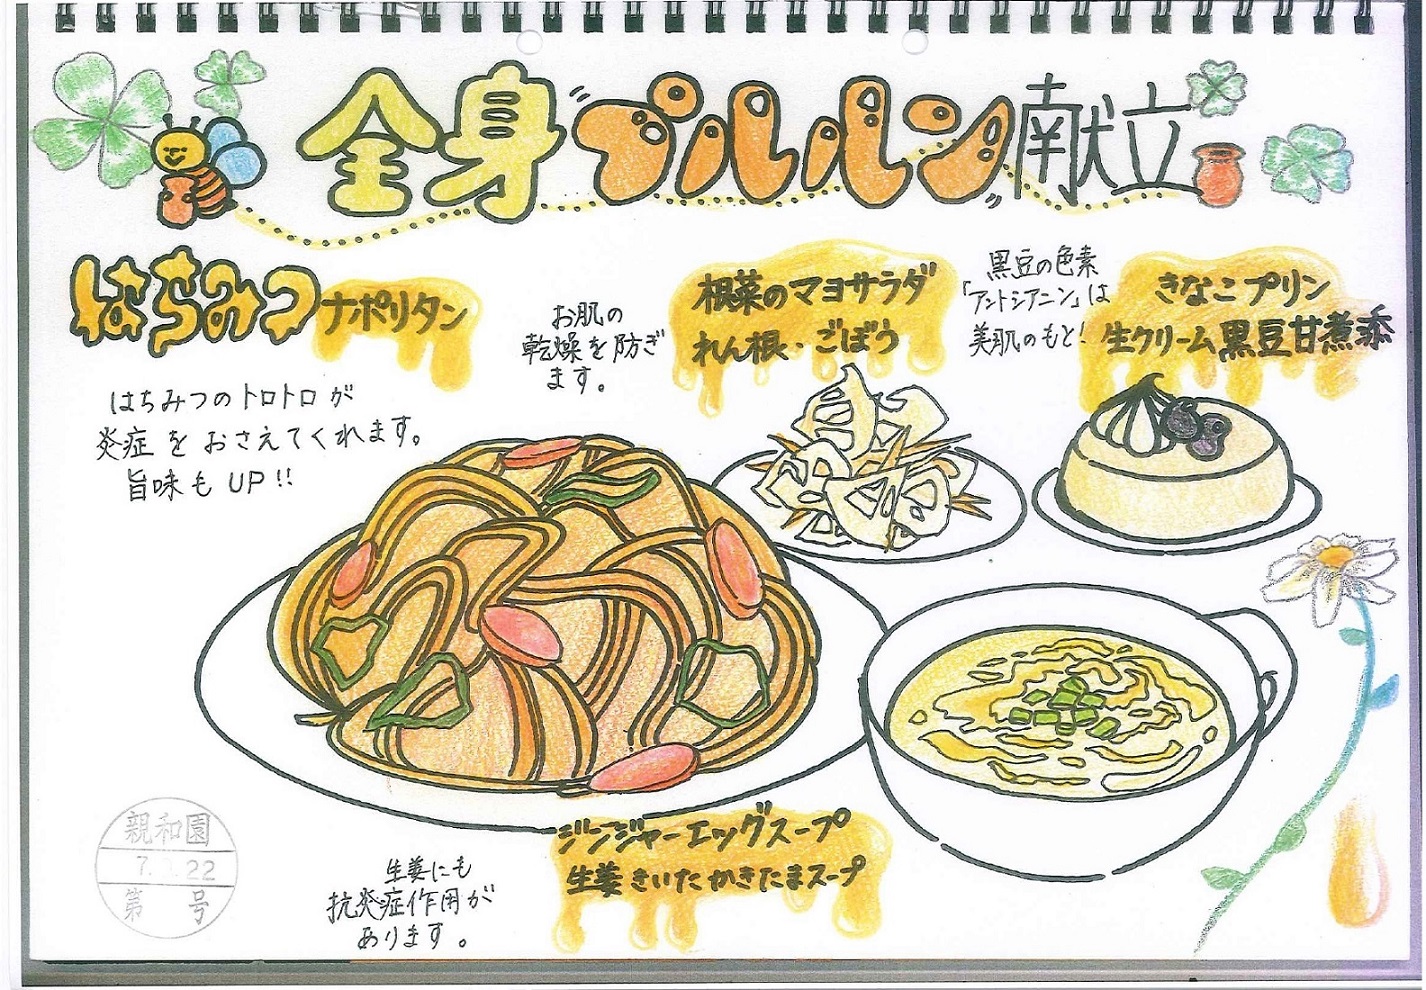 全身プルルン献立
はちみつナポリタン
はちみつのトロトロが
炎症をおさえてくれます。
旨味もUP!!
お肌の
乾燥を防ぎ
ます。
根菜のマヨサラダ
れん根・ごぼう
黒豆の色素
「アントシアニン」は
美肌のもと!
きなこプリン
生クリーム黒豆甘煮添
ジンジャーエッグスープ
生姜きいたかきたまスープ
生姜にも
抗炎症作用が
あります。
親和園
22
第 号